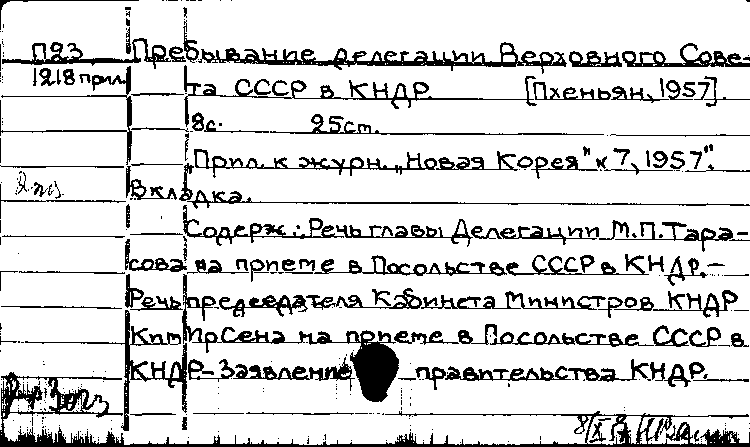 П23 Пребывание делегации Верховного Сове-
1218 прил. та СССР в КНДР. [Пхеньян, 1957].
8с. 25см.
„Прил. к журн. „Новая Корея" к 7, 1957".
2 экз Вкладка.
Содерж.: Речь главы Делегации М.П.Тара-
сова на приеме в Посольстве СССР в КНДР.-
Речь председателя Кабинета Министров КНДР
Ким Ир Сена на приеме в Посольстве СССР в
КНДР.-Заявление правительства КНДР.